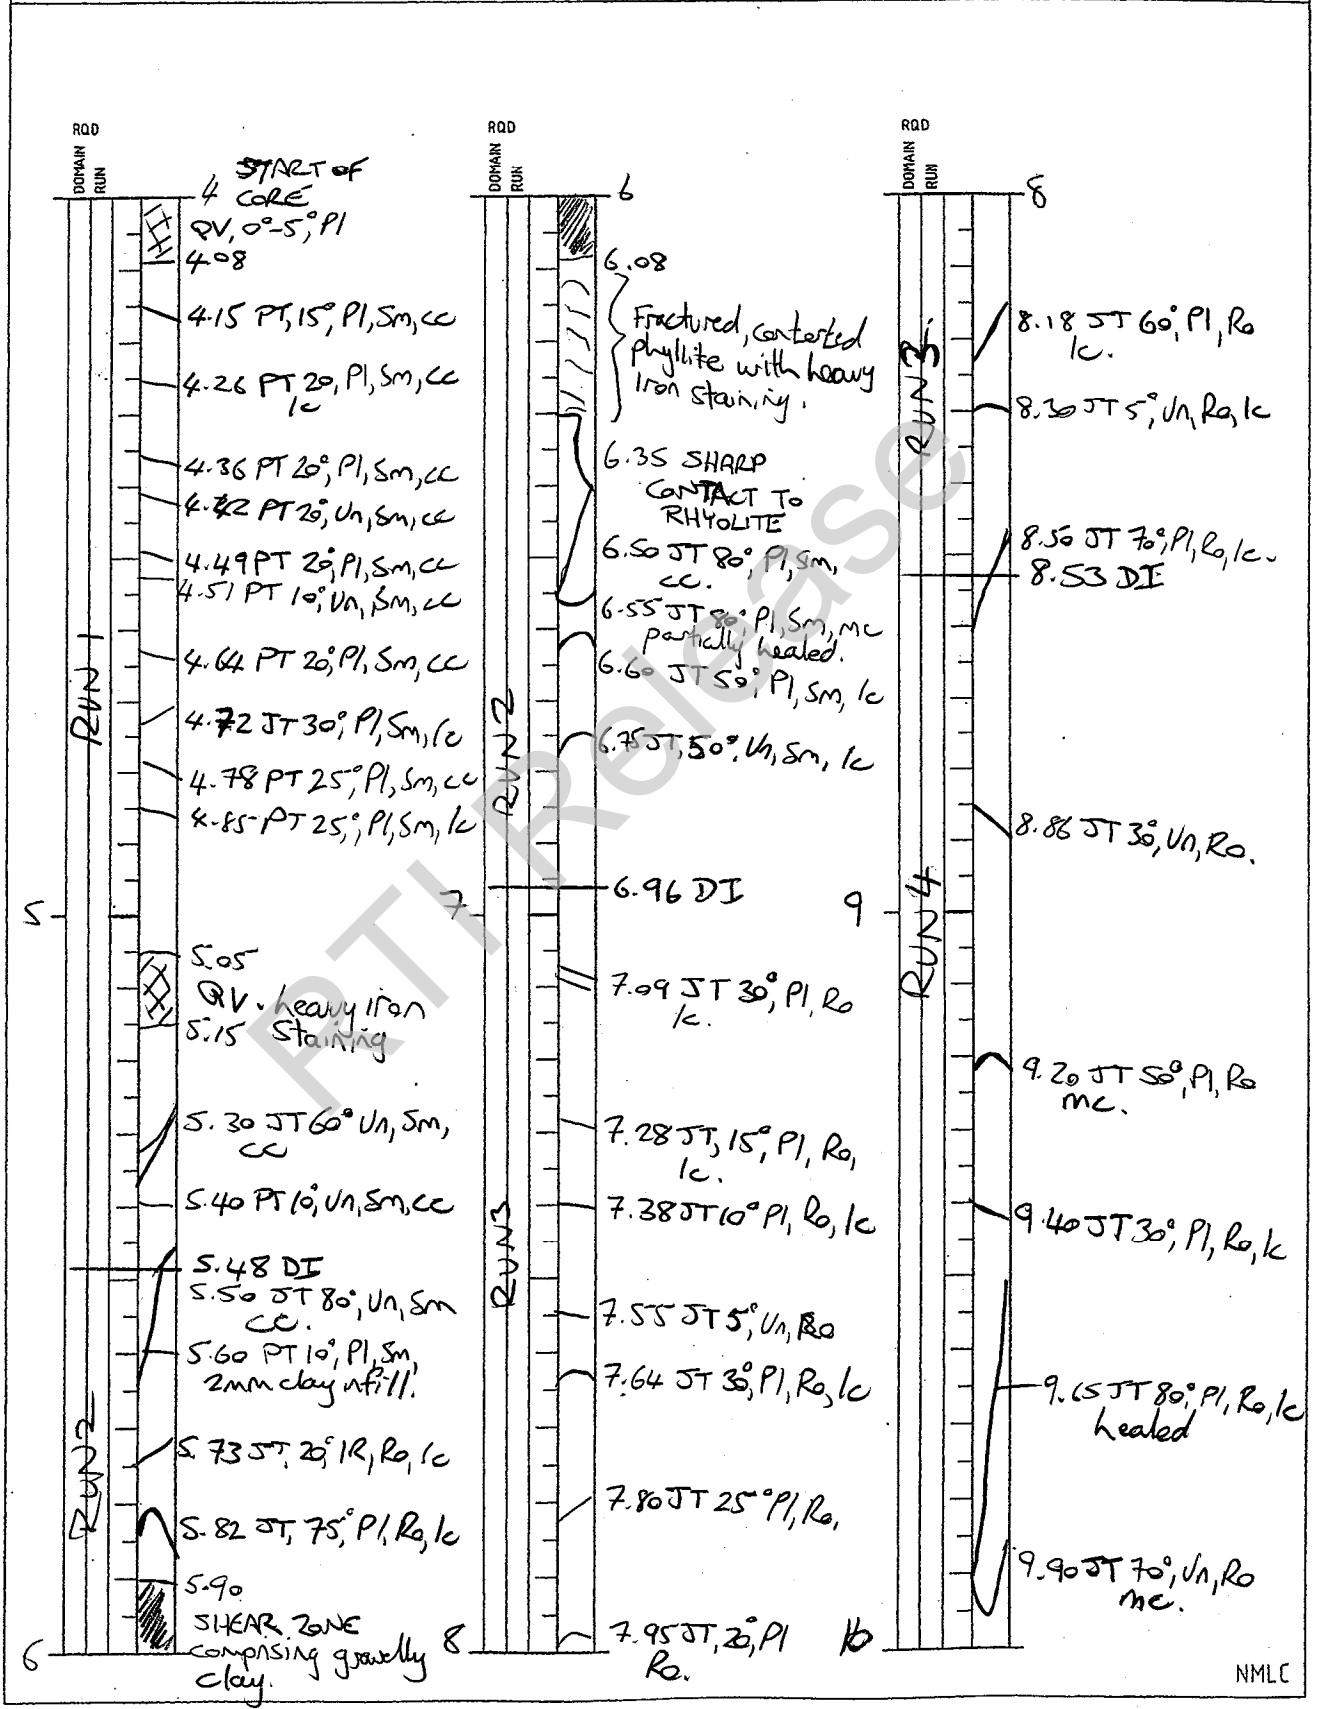 RQD
DOMAIN
RUN
4 START OF
CORE
QV, 0°-5°, Pl
4.08
4.15 PT, 15°, Pl, Sm, cc
4.26 PT 20, Pl, Sm, cc
lc
4.36 PT 20°, Pl, Sm, cc
4.42 PT 20°, Un, Sm, cc
4.49 PT 20°, Pl, Sm, cc
4.51 PT 10°, Un, Sm, cc
RUN 1
4.64 PT 20°, Pl, Sm, cc
4.72 JT 30°, Pl, Sm, lc
4.78 PT 25°, Pl, Sm, cc
4.85 PT 25°, Pl, Sm, lc
5
5.05
QV. heavy iron
5.15 Staining
5.30 JT 60° Un, Sm,
cc
5.40 PT 10°, Un, Sm, cc
5.48 DI
5.50 JT 80°, Un, Sm
cc.
5.60 PT 10°, Pl, Sm,
2mm clay infill.
RUN 2
5.73 JT, 20°, IR, Ro, lc
5.82 JT, 75°, Pl, Ro, lc
5.90
SHEAR ZONE
comprising gravelly
clay.
6
RQD
DOMAIN
RUN
6
6.08
Fractured, contorted
phyllite with heavy
Iron staining.
6.35 SHARP
CONTACT TO
RHYOLITE
6.50 JT 80°, Pl, Sm,
cc.
6.55 JT 80°, Pl, Sm, mc
partially healed.
6.60 JT 50°, Pl, Sm, lc
RUN 2
6.75 JT, 50°, Un, Sm, lc
6.96 DI
7
7.09 JT 30°, Pl, Ro
lc.
7.28 JT, 15°, Pl, Ro,
lc.
7.38 JT 10° Pl, Ro, lc
RUN 3
7.55 JT 5°, Un, Ro
7.64 JT 30°, Pl, Ro, lc
7.80 JT 25° Pl, Ro,
7.95 JT, 20°, Pl
Ro.
8
RQD
DOMAIN
RUN
8
8.18 JT 60°, Pl, Ro
lc.
RUN 3.
8.30 JT 5°, Un, Ro, lc
8.50 JT 70°, Pl, Ro, lc.
8.53 DI
8.86 JT 30°, Un, Ro.
9
RUN 4
9.20 JT 50°, Pl, Ro
mc.
9.40 JT 30°, Pl, Ro, lc
9.65 JT 80°, Pl, Ro, lc
healed
9.90 JT 70°, Un, Ro
mc.
10
NMLC
RTI Release